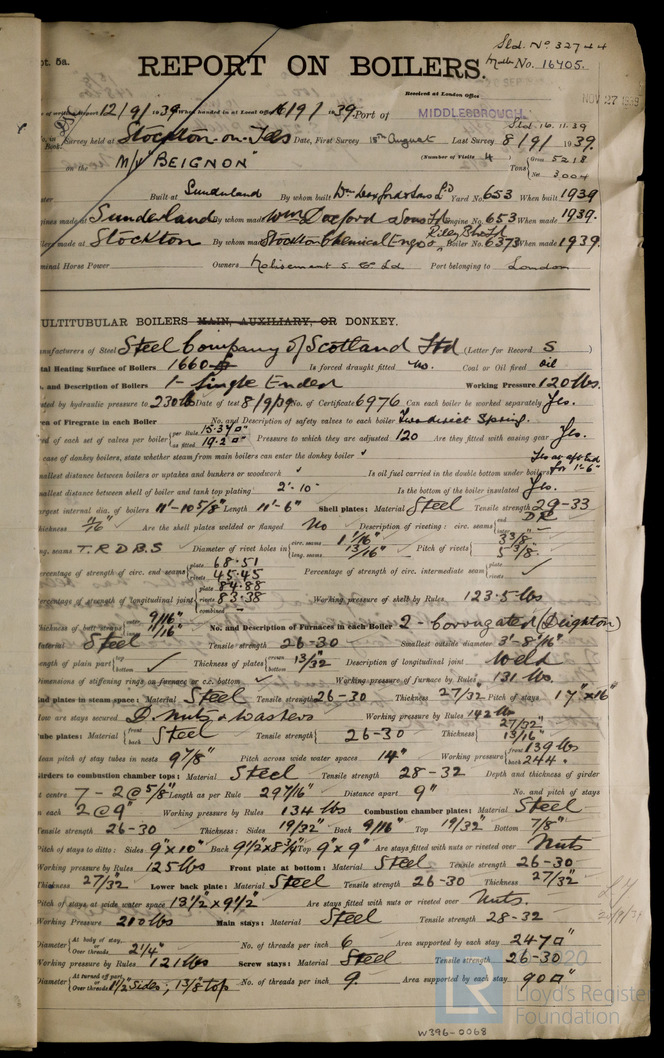 Sld. No 32744
pt. 5a.
REPORT ON BOILERS.
No. 16405.
Received at London Office
NOV 27 1939
12/9/1939 When handed in at Local Office 16/9/1939. Port of MIDDLESBROUGH
Sld. 16.11.39
Survey held at Stockton-on-Tees Date, First Survey 15th August Last Survey 8/9/1939.
on the M/V "BEIGNON" (Number of Visits 4) Tons Gross 5218
Net 3,004
Built at Sunderland By whom built Wm Doxford & Sons Ld Yard No 653 When built 1939
gines made at Sunderland By whom made Wm Doxford & Sons Ltd Engine No 653 When made 1939.
made at Stockton By whom made Stockton Chemical Engrs & Riley Blrs Ltd Boiler No. 6373 When made 1939.
minal Horse Power Owners Port belonging to London
ULTITUBULAR BOILERS MAIN, AUXILIARY, OR DONKEY.
anufacturers of Steel Steel Company of Scotland Ltd (Letter for Record S )
tal Heating Surface of Boilers 1660 Is forced draught fitted No. Coal or Oil fired oil
and Description of Boilers 1 - Single Ended Working Pressure 120 lbs.
ted by hydraulic pressure to 230 lbs Date of test 8/9/39 No. of Certificate 6976 Can each boiler be worked separately Yes.
ea of Firegrate in each Boiler No. and Description of safety valves to each boiler Two direct Spring.
ea of each set of valves per boiler per Rule 15.37 □" as fitted 19.2 □" Pressure to which they are adjusted 120 Are they fitted with easing gear Yes.
case of donkey boilers, state whether steam from main boilers can enter the donkey boiler ✓
Yes at aft End for 1'-6"
mallest distance between boilers or uptakes and bunkers or woodwork ✓ Is oil fuel carried in the double bottom under boilers
mallest distance between shell of boiler and tank top plating 2'-10" Is the bottom of the boiler insulated Yes.
argest internal dia. of boilers 11'-10 5/8" Length 11'-6" Shell plates: Material Steel Tensile strength 29-33
hickness 11/16" Are the shell plates welded or flanged No Description of riveting: circ. seams end DR
ng. seams T.R.D.B.S Diameter of rivet holes in circ. seams 1 1/16" long. seams 13/16" Pitch of rivets 3 3/8" 5 3/8"
ercentage of strength of circ. end seams plate 68.51 rivets 45.45 Percentage of strength of circ. intermediate seam plate rivets ✓
ercentage of strength of longitudinal joint plate 84.88 rivets 83.38 combined - Working pressure of shell by Rules 123.5 lbs
Thickness of butt straps outer 9/16" inner 11/16" No. and Description of Furnaces in each Boiler 2 - Corrugated (Deighton)
aterial Steel Tensile strength 26-30 Smallest outside diameter 3'-8 1/16"
ength of plain part top bottom ✓ Thickness of plates crown bottom 13/32 Description of longitudinal joint Weld
imensions of stiffening rings on furnace or c.c. bottom ✓ Working pressure of furnace by Rules 131 lbs.
nd plates in steam space: Material Steel Tensile strength 26-30 Thickness 27/32 Pitch of stays 17" x 16"
ow are stays secured D. nuts & washers Working pressure by Rules 142 lbs
ube plates: Material front back Steel Tensile strength 26-30 Thickness 27/32" 13/16"
ean pitch of stay tubes in nests 9 7/8" Pitch across wide water spaces 14" Working pressure front 139 lbs back 244 "
irders to combustion chamber tops: Material Steel Tensile strength 28-32 Depth and thickness of girder
t centre 7 - 2 @ 5/8" Length as per Rule 29 7/16" Distance apart 9" No. and pitch of stays
n each 2 @ 9" Working pressure by Rules 134 lbs Combustion chamber plates: Material Steel
ensile strength 26-30 Thickness: Sides 19/32" Back 9/16" Top 19/32" Bottom 7/8"
Pitch of stays to ditto: Sides 9" x 10" Back 9 1/2" x 8 3/4" Top 9" x 9" Are stays fitted with nuts or riveted over Nuts
Working pressure by Rules 125 lbs Front plate at bottom: Material Steel Tensile strength 26-30
Thickness 27/32 Lower back plate: Material Steel Tensile strength 26-30 Thickness 27/32"
Pitch of stays at wide water space 13 1/2" x 9 1/2" Are stays fitted with nuts or riveted over Nuts.
Working Pressure 210 lbs Main stays: Material Steel Tensile strength 28-32
Diameter At body of stay, or Over threads 2 1/4" No. of threads per inch 6 Area supported by each stay 247 □"
Working pressure by Rules 121 lbs Screw stays: Material Steel Tensile strength 26-30
Diameter At turned off part, or Over threads 1 1/2" Sides, 1 3/8" Top No. of threads per inch 9. Area supported by each stay 90 □"
© 2020
LR
Lloyd's Register
Foundation
W396-0068